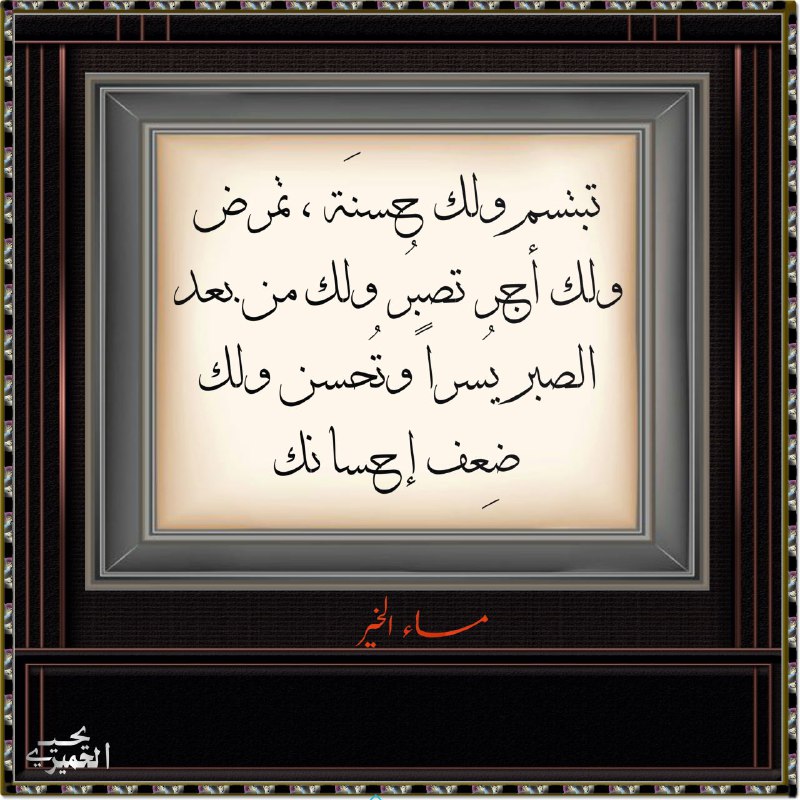 تبتسم ولك حسنَة ، تمرض
ولك أجر تصبرُ ولك من بعد
الصبر يُسراً وتُحسن ولك
ضِعف إحسانك
مساء الخير
يحيى
الحميري